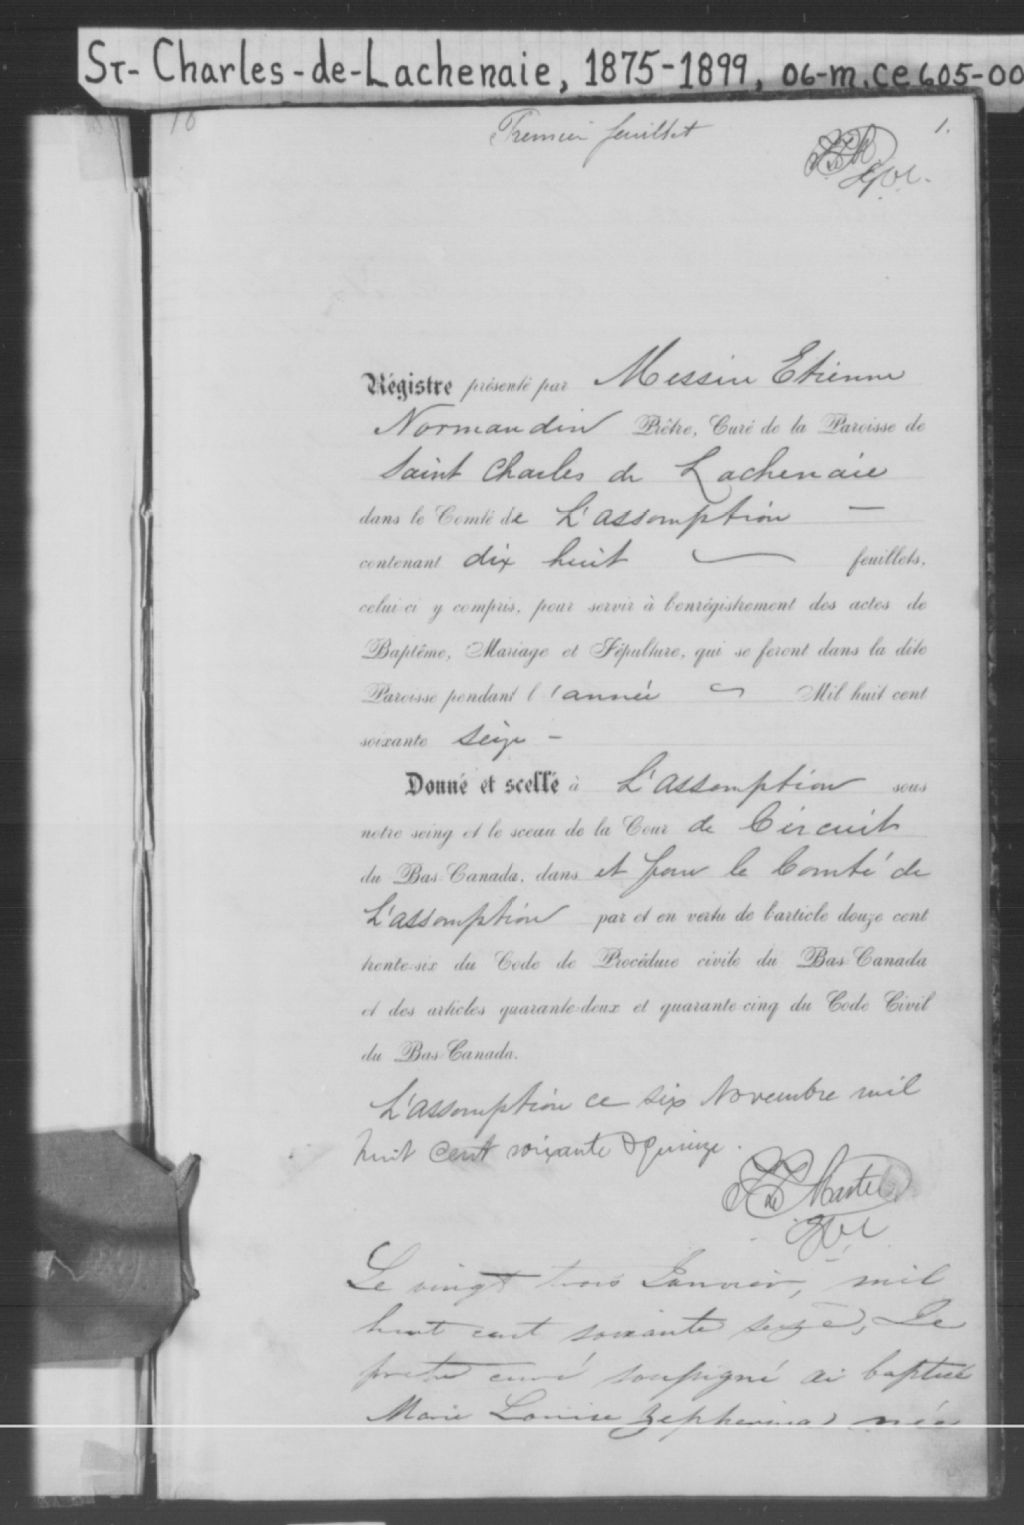 St-Charles-de-Lachenaie, 1875-1899, 06-m.ce605-00
Premier feuillet
1.
Régistre présenté par Messire Etienne
Normandin Prêtre, Curé de la Paroisse de
Saint Charles de Lachenaie
dans le Comté de L'assomption —
contenant dix huit — feuillets,
celui-ci y compris, pour servir à l'enrégistrement des actes de
Baptême, Mariage et Sépulture, qui se feront dans la dite
Paroisse pendant l'année — Mil huit cent
soixante seize —
Donné et scellé à L'assomption sous
notre seing et le sceau de la Cour de Circuit
du Bas-Canada, dans et pour le Comté de
L'assomption par et en vertu de l'article douze cent
trente-six du Code de Procédure civile du Bas-Canada
et des articles quarante-deux et quarante-cinq du Code Civil
du Bas-Canada.
L'assomption ce six Novembre mil
huit cent soixante & quinze.
Martel
Le vingt trois Janvier, mil
huit cent soixante seize, Je
pretre curé soussigné ai baptisé
Marie Louise Zephirina née